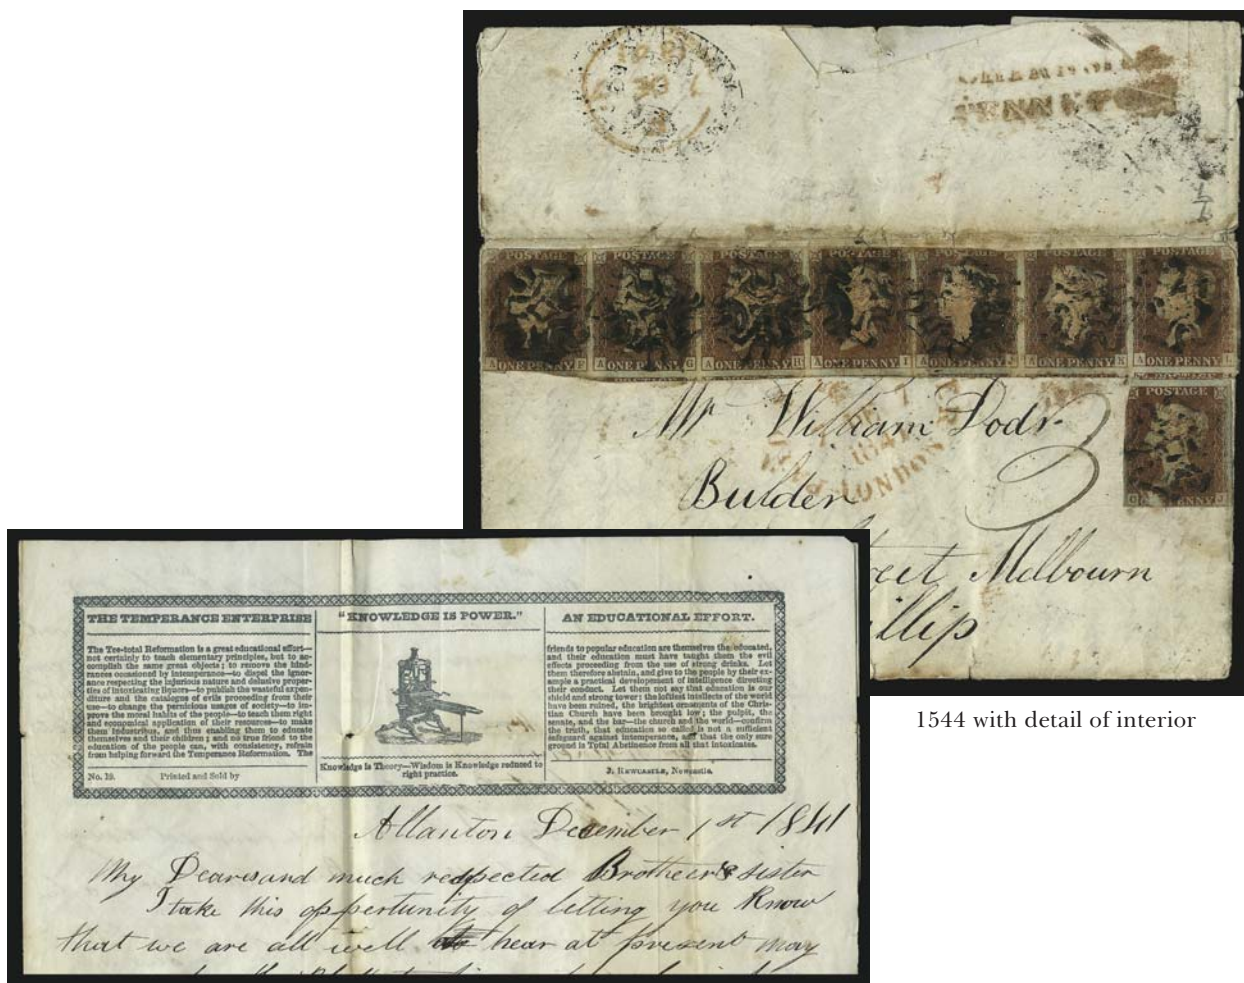 PENNY
POSTAGE POSTAGE POSTAGE POSTAGE POSTAGE POSTAGE POSTAGE
A ONE PENNY F A ONE PENNY G A ONE PENNY H A ONE PENNY I A ONE PENNY J A ONE PENNY K A ONE PENNY L
Mr William Dods
POSTAGE
3
LONDON
Bulder
PENNY J
Melbourn
illip
1544 with detail of interior
THE TEMPERANCE ENTERPRISE
The Tee-total Reformation is a great educational effort—
not certainly to teach elementary principles, but to ac-
complish the same great objects; to remove the hind-
rances occasioned by intemperance—to dispel the ignor-
ance respecting the injurious nature and delusive proper-
ties of intoxicating liquors—to publish the wasteful expen-
diture and the catalogue of evils proceeding from their
use—to change the pernicious usages of society—to im-
prove the moral habits of the people—to teach them right
and economical application of their resources—to make
them industrious, and thus enabling them to educate
themselves and their children; and no true friend to the
education of the people can, with consistency, refrain
from helping forward the Temperance Reformation. The
No. 19. Printed and Sold by
"KNOWLEDGE IS POWER."
Knowledge is Theory—Wisdom is Knowledge reduced to
right practice.
AN EDUCATIONAL EFFORT.
friends to popular education are themselves the educated,
and their education must have taught them the evil
effects proceeding from the use of strong drinks. Let
them therefore abstain, and give to the people by their ex-
ample a practical developement of intelligence directing
their conduct. Let them not say that education is our
shield and strong tower: the loftiest intellects of the world
have been ruined, the brightest ornaments of the Chris-
tian Church have been brought low; the pulpit, the
senate, and the bar—the church and the world—confirm
the truth, that education so called is not a sufficient
safeguard against intemperance, and that the only sure
ground is Total Abstinence from all that intoxicates.
J. REWCASTLE, Newcastle.
Allanton December 1st 1841
My Dear and much respected Brother & sister
I take this oppertunity of letting you Know
that we are all well hear at present may